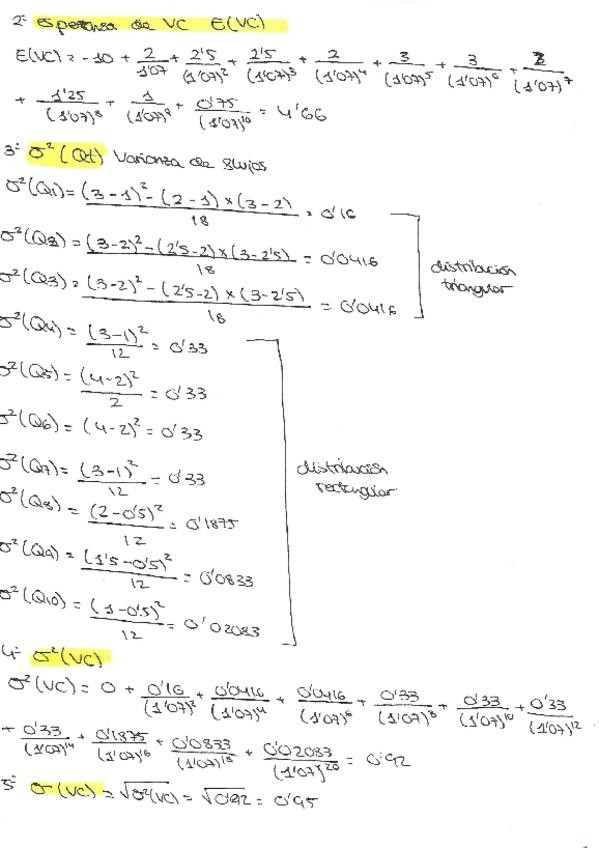 2º esperanza de VC E(VC)
E(VC) = -10 + 2/1'07 + 2'5/(1'07)² + 2'5/(1'07)³ + 2/(1'07)⁴ + 3/(1'07)⁵ + 3/(1'07)⁶ + 2/(1'07)⁷
+ 1'25/(1'07)⁸ + 1/(1'07)⁹ + 0'75/(1'07)¹⁰ = 4'66
3º σ²(Qt) Varianza de flujos
σ²(Q1) = (3-1)² - (2-1) x (3-2)/18 = 0'16
σ²(Q2) = (3-2)² - (2'5-2) x (3-2'5)/18 = 0'0416
σ²(Q3) = (3-2)² - (2'5-2) x (3-2'5)/18 = 0'0416
distribución
triangular
σ²(Q4) = (3-1)²/12 = 0'33
σ²(Q5) = (4-2)²/2 = 0'33
σ²(Q6) = (4-2)² = 0'33
σ²(Q7) = (3-1)²/12 = 0'33
σ²(Q8) = (2-0'5)²/12 = 0'1875
σ²(Q9) = (1'5-0'5)²/12 = 0'0833
σ²(Q10) = (1-0'5)²/12 = 0'02083
distribución
rectangular
4º σ²(VC)
σ²(VC) = 0 + 0'16/(1'07)² + 0'0416/(1'07)⁴ + 0'0416/(1'07)⁶ + 0'33/(1'07)⁸ + 0'33/(1'07)¹⁰ + 0'33/(1'07)¹²
+ 0'33/(1'07)¹⁴ + 0'1875/(1'07)¹⁶ + 0'0833/(1'07)¹⁸ + 0'02083/(1'07)²⁰ = 0'92
5º σ(VC) = √σ²(VC) = √0'92 = 0'95